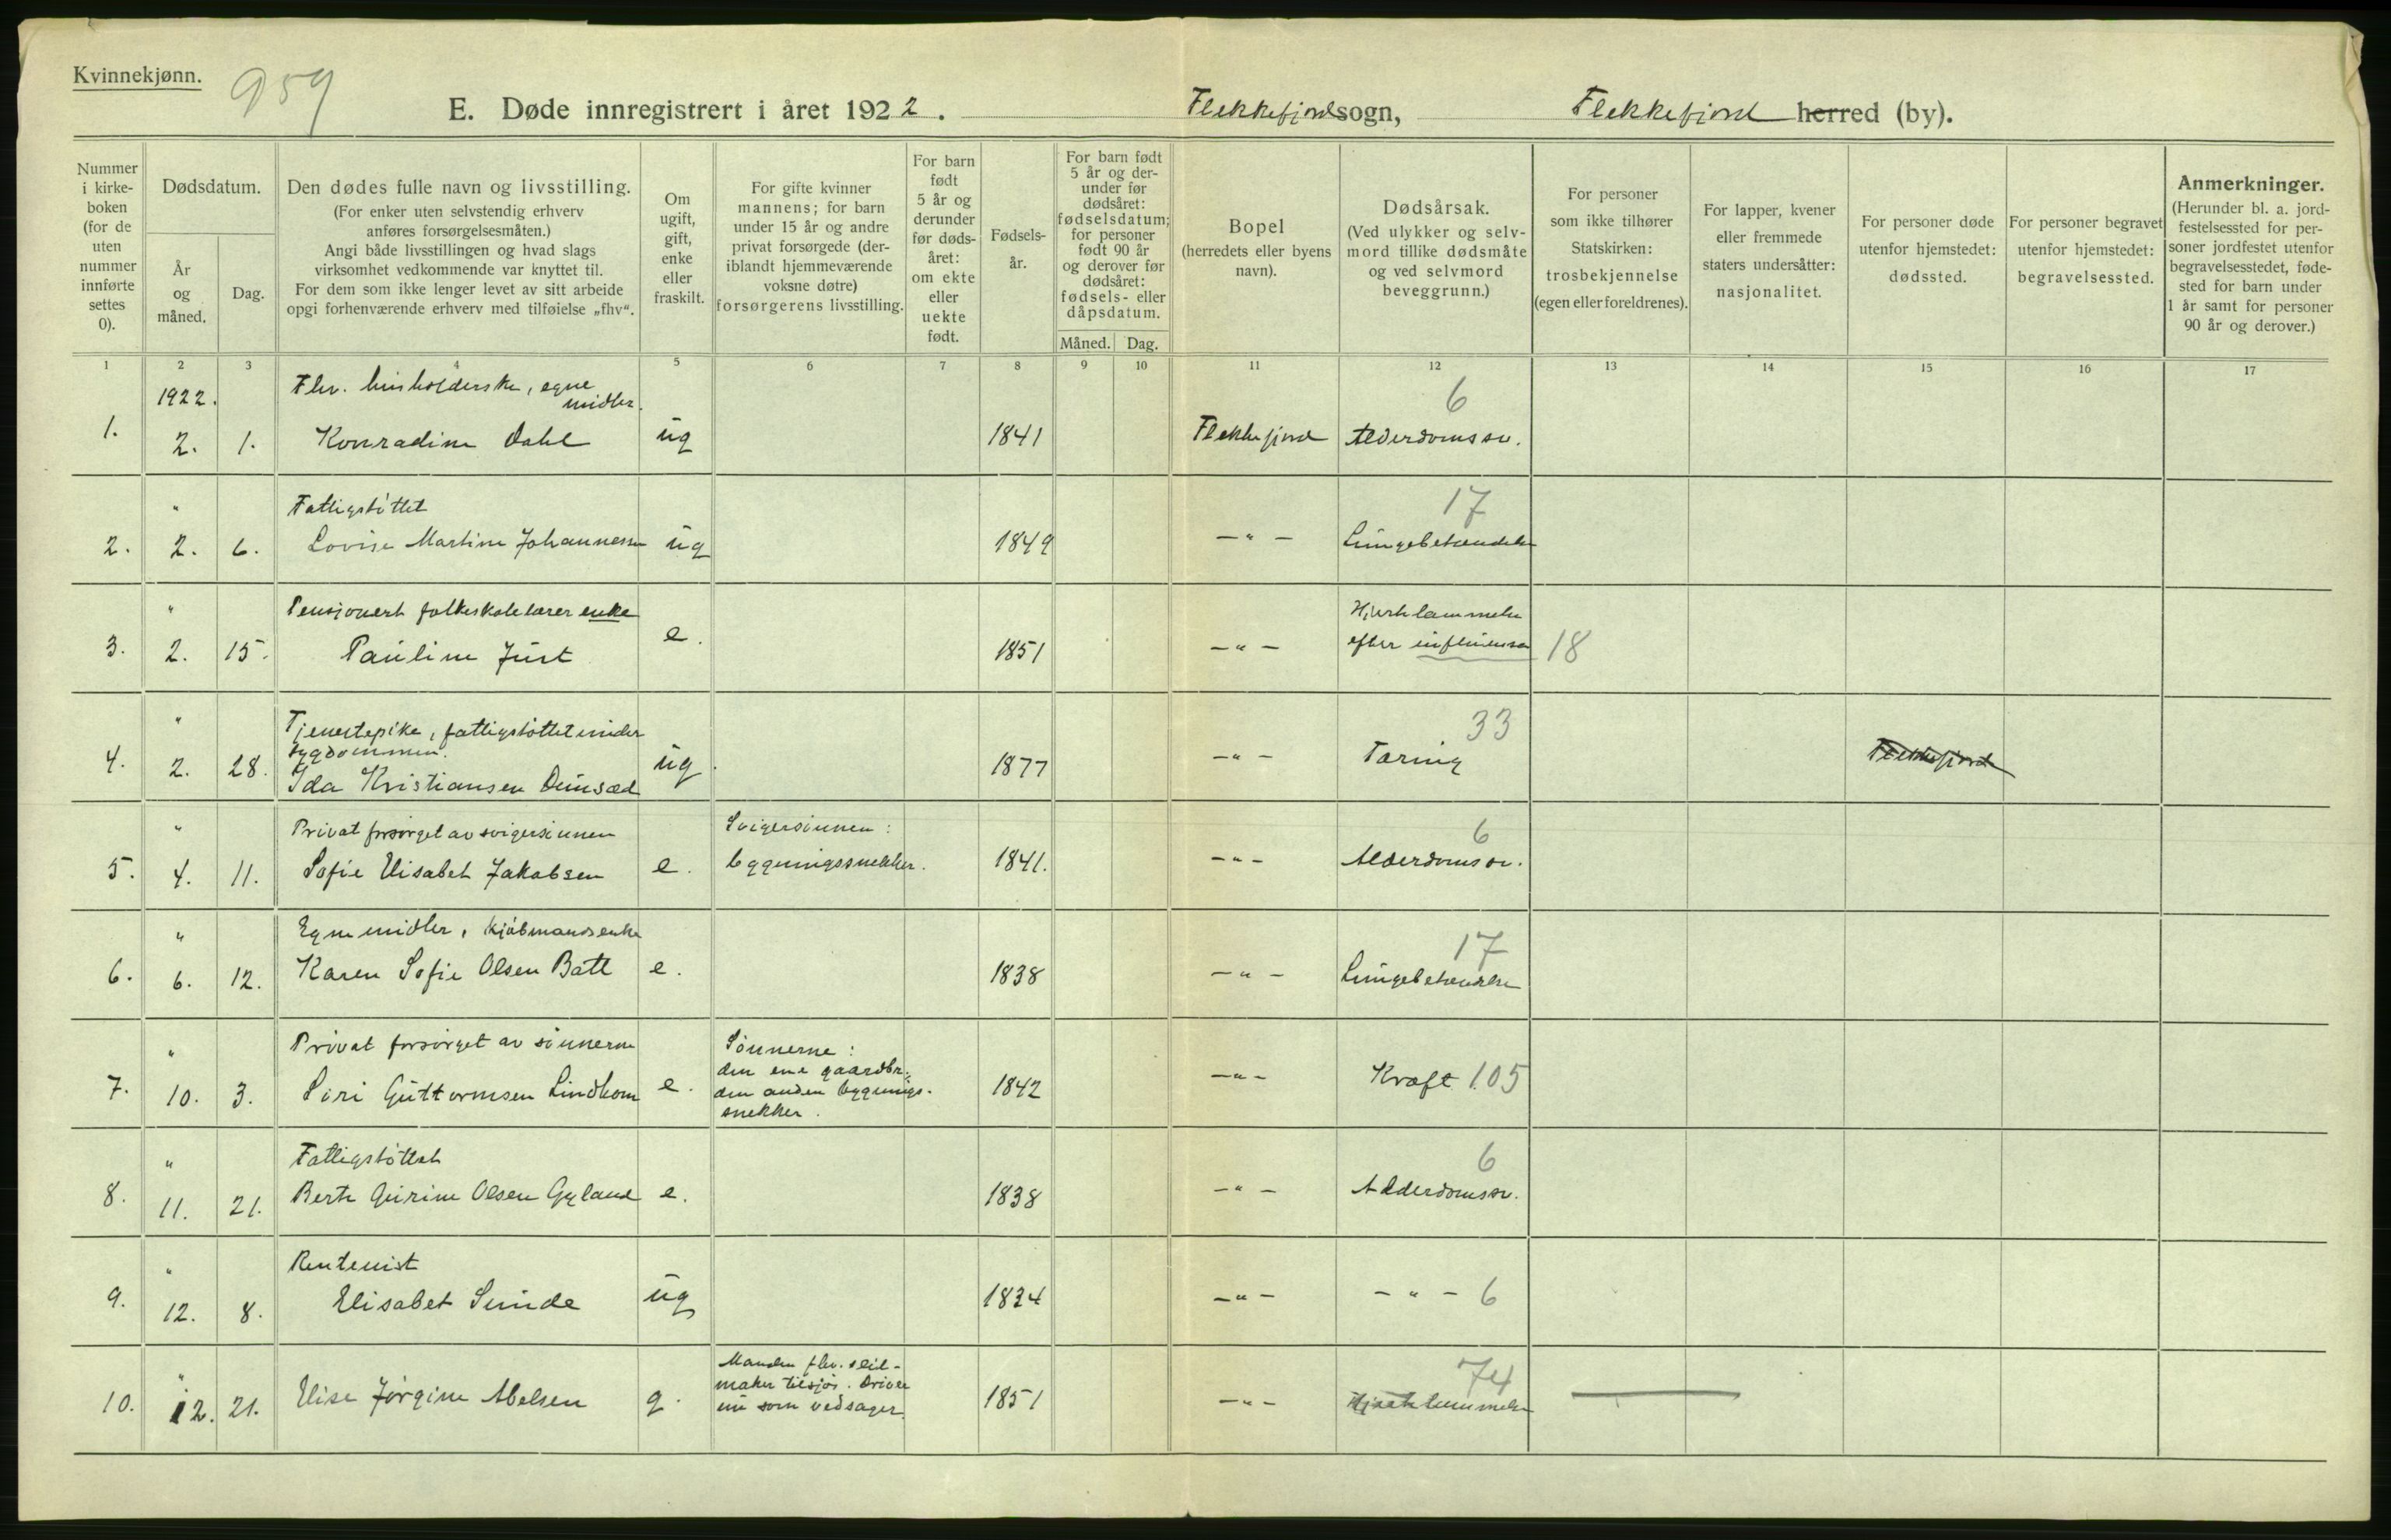 Kvinnekjønn.
959
E. Døde innregistrert i året 1922. Flekkefjord sogn, Flekkefjord herred (by).
Nummer i kirkeboken (for de uten nummer innførte settes 0).
Dødsdatum.
År og måned.
Dag.
Den dødes fulle navn og livsstilling.
(For enker uten selvstendig erhverv
anføres forsørgelsesmåten.)
Angi både livsstillingen og hvad slags
virksomhet vedkommende var knyttet til.
For dem som ikke lenger levet av sitt arbeide
opgi forhenværende erhverv med tilføielse „fhv“.
Om ugift, gift, enke eller fraskilt.
For gifte kvinner
mannens; for barn
under 15 år og andre
privat forsørgede (der-
iblandt hjemmeværende
voksne døtre)
forsørgerens livsstilling.
For barn
født
5 år og
derunder
før døds-
året:
om ekte
eller
uekte
født.
Fødsels-
år.
For barn født
5 år og der-
under før
dødsåret:
fødselsdatum;
for personer
født 90 år
og derover før
dødsåret:
fødsels- eller
dåpsdatum.
Måned. Dag.
Bopel
(herredets eller byens
navn).
Dødsårsak.
(Ved ulykker og selv-
mord tillike dødsmåte
og ved selvmord
beveggrunn.)
For personer
som ikke tilhører
Statskirken:
trosbekjennelse
(egen eller foreldrenes).
For lapper, kvener
eller fremmede
staters undersåtter:
nasjonalitet.
For personer døde
utenfor hjemstedet:
dødssted.
For personer begravet
utenfor hjemstedet:
begravelsessted.
Anmerkninger.
(Herunder bl. a. jord-
festelsessted for per-
soner jordfestet utenfor
begravelsesstedet, føde-
sted for barn under
1 år samt for personer
90 år og derover.)
1 2 3 4 5 6 7 8 9 10 11 12 13 14 15 16 17
1922. Fhv. husholderske, egne
midler. 6
1. 2. 1. Konradine Dahl ug 1841 Flekkefjord Alderdomssv.
" Fattigstøttet 17
2. 2. 6. Lovise Martine Johannessen ug 1849 — " — Lungebetændelse
" Pensjonert folkeskolelærerenke Hjertelammelse
3. 2. 15. Pauline Just e. 1851 — " — efter influensa 18
" Tjenestepike, fattigstøttet under
sygdommen. 33
4. 2. 28. Ida Kristiansen Dunsæd ug. 1877 — " — Tæring Flekkefjord
" Privat forsørget av svigersønnen Svigersønnen: 6
5. 4. 11. Sofie Elisabet Jakobsen e. bygningssnekker. 1841. — " — Alderdomssv.
" Egne midler, kjøbmandsenke 17
6. 6. 12. Karen Sofie Olsen Batt e. 1838 — " — Lungebetændelse
" Privat forsørget av sønnerne Sønnerne:
den ene gaardbr.,
7. 10. 3. Siri Guttormsen Lindhom e. den anden bygnings- 1842 — " — Kræft 105
snekker.
" Fattigstøttet 6
8. 11. 21. Berte Gurine Olsen Gyland e. 1838 — " — Alderdomssv.
" Rentenist
9. 12. 8. Elisabet Sunde ug 1834 — " — — " — 6
" Manden fhv. seil-
maker tilsjøs. Driver 74
10. 12. 21. Elise Jørgine Abelsen g. nu som vedsager. 1851 — " — Hjertelammelse